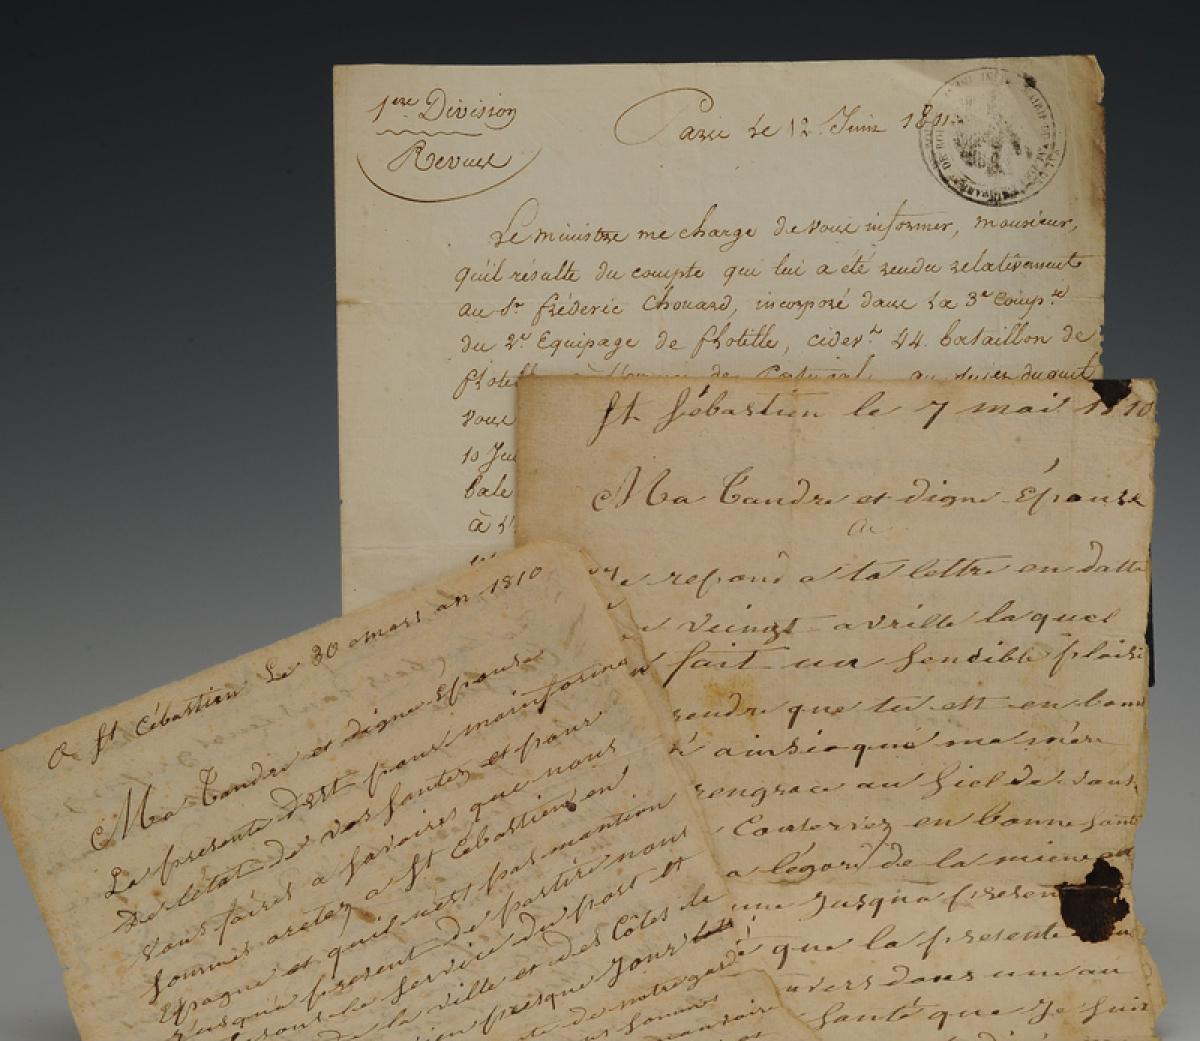 1ere Division
Revues
Paris le 12. Juin 1811
Le ministre me charge de vous informer, monsieur,
qu'il résulte du compte qui lui a été rendu relativement
au Sr. frédéric Chouard, incorporé dans la 3e Comp.ie
du 2e Equipage de flotille, cidevt. 44. bataillon de
vous
10
à
St. Sébastien le 7 mai 1810
Ma Tandre et digne Épouse
repond a ta lettre en datte
veingt avrille laquel
fait un sensible plaisi
rendre que tu est en bonn
ainsioque ma mère
rengrace au siel de vous
Conserviez en bonne santé
a légord de la miene
une Jusqua presen
que la presente
uvers dans un au
santé que Je suis
a St Cébastien Le 30 mars an 1810
Ma Tandre et digne Épouse
La presente d'est pour
De letat de vos santez et pour
vous faires a savoires que nous
sommes aretez a St Cébastien en
Epagne et quil n'est pas mantion
Jusqua present de partire nous
fesons le service du port et
de la ville et des Côtes de
presque Jour
de notre garde
sommes